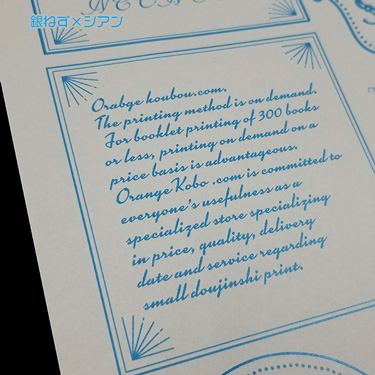 銀ねず×シアン
Orabge koubou.com.
The printing method is on demand.
For booklet printing of 300 books
or less, printing on demand on a
price basis is advantageous.
Orange Kobo .com is committed to
everyone's usefulness as a
specialized store specializing
in price, quality, delivery
date and service regarding
small doujinshi print.